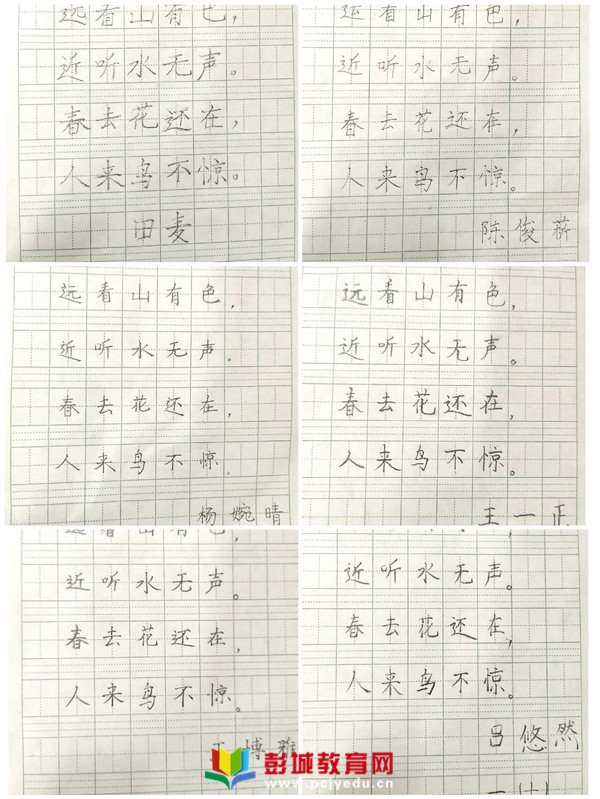 远看山有色，
近听水无声。
春去花还在，
人来鸟不惊。
田麦
远看山有色，
近听水无声。
春去花还在，
人来鸟不惊。
陈俊
远看山有色，
近听水无声.
春去花还在，
人来鸟不惊.
杨婉晴
远看山有色，
近听水无声。
春去花还在，
人来鸟不惊。
王一正
远看山有色，
近听水无声。
春去花还在，
人来鸟不惊。
王博雅
近听水无声。
春去花还在，
人来鸟不惊。
吕悠然
彭城教育网
www.pcjyedu.cn